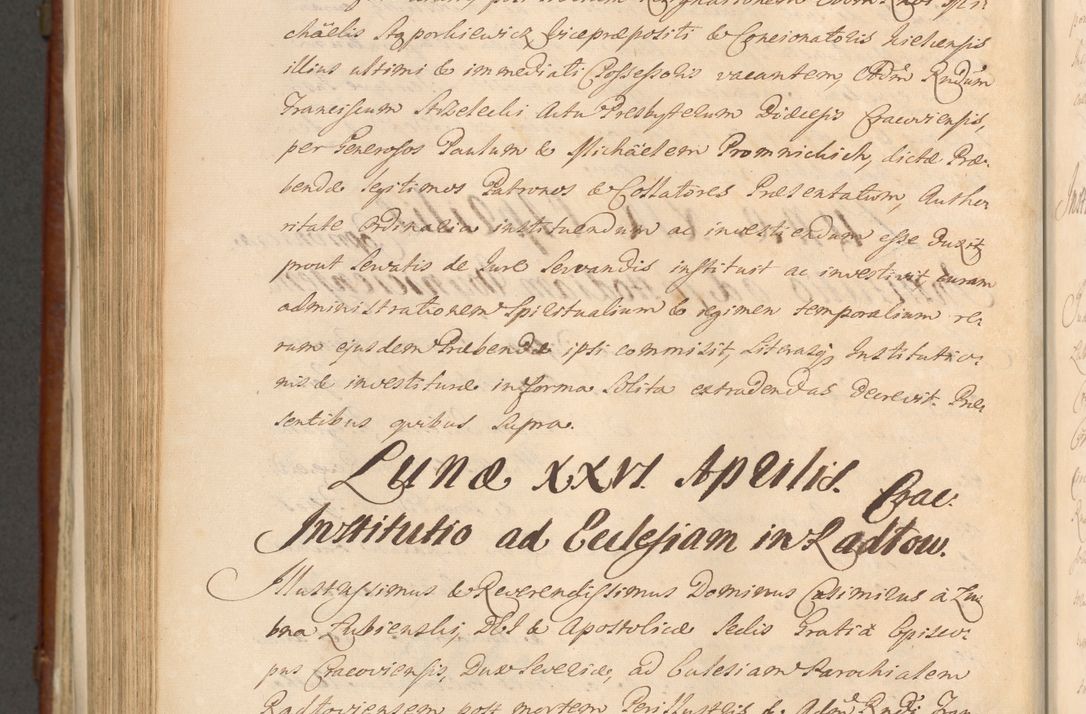 chäelis Stoporkiewicz Vicepræpositi & Concionatoris Kielcensis
illius ultimi & immediati Possessoris vacantem, Adm Rndum
Franciscum Strzelecki Actu Presbyterum Diæcesis Cracoviensis,
per Generosos Paulum & Michäelem Promnickich, dictæ Præ-
bendæ legitimos Patronos & Collatores Præsentatum, Autho-
ritate Ordinaria instituendum ac investiendum esse duxit
prout servatis de Jure servandis instituit ac investivit, curam
administrationem Spiritualium & regimen temporalium re-
rum ejusdem Præbendæ ipsi commisit, Literasq; Institutio-
nis & investituræ in forma solita extradendas decrevit. Præ-
sentibus quibus supra.
Lunæ XXVI Aprilis. Crac:
Institutio ad Ecclesiam in Radłow.
Illustrissimus & Reverendissimus Dominus Casimirus à Łu-
bna Łubienski, DEI & Apostolicæ Sedis Gratia Episco-
pus Cracoviensis, Dux Severiæ, ad Ecclesiam Parochialem
Radłoviensem post mortem Perillustris & Adm Rndi Fran